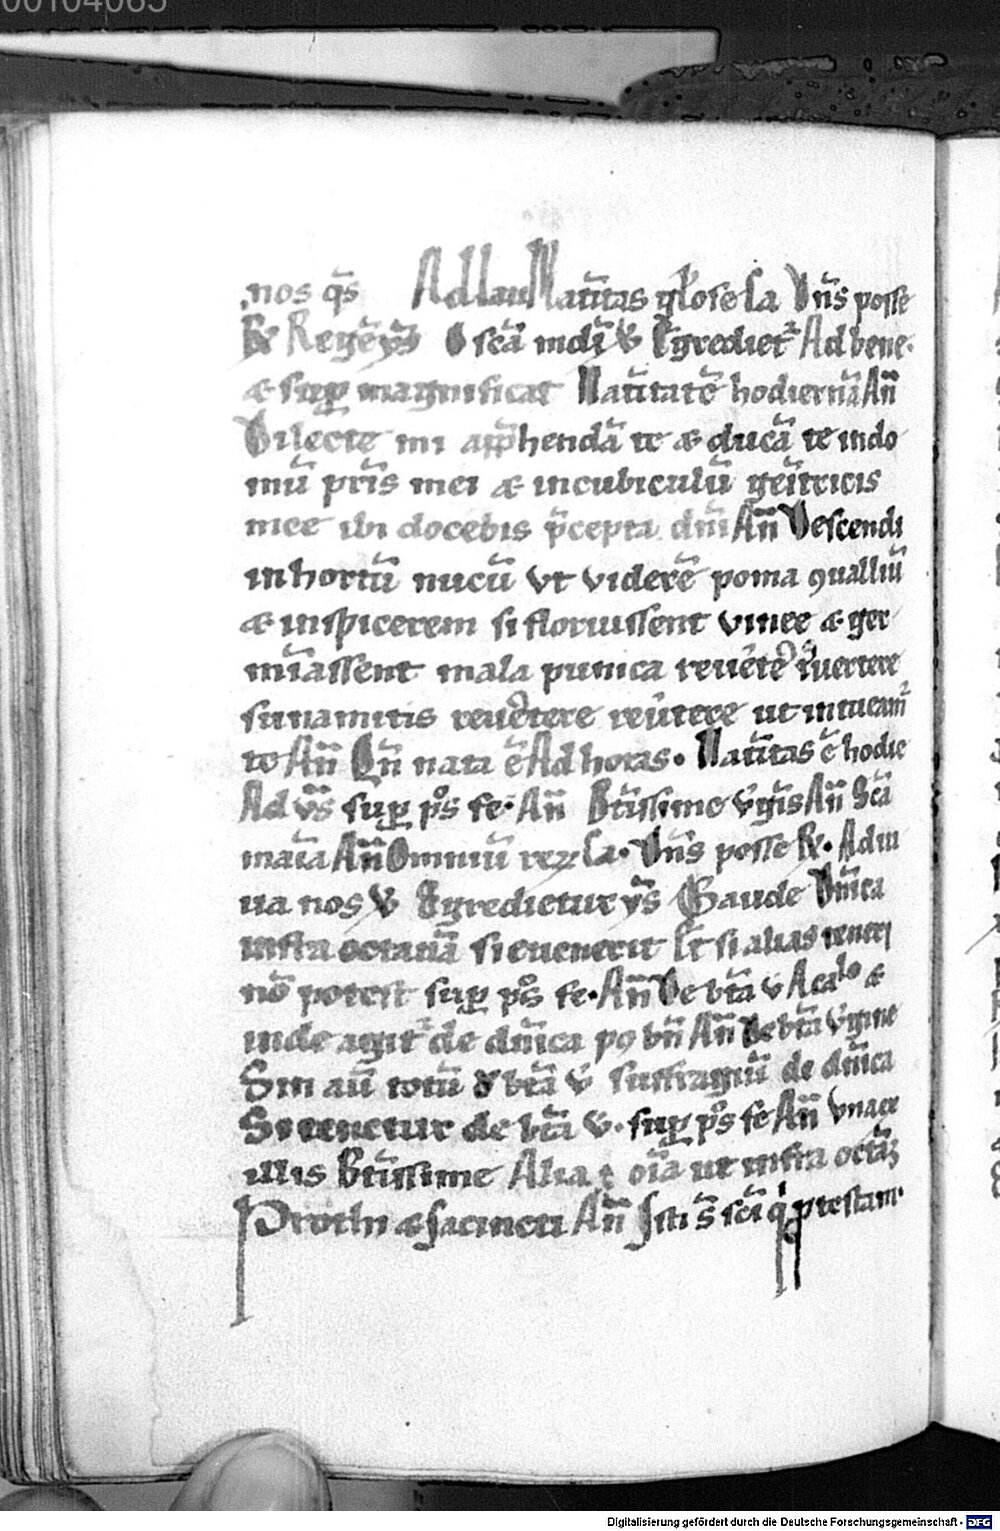 00104065
nos qs̄ Ad lau Natīitas gl'ose La Vn̄s posse
℟ Regē ys̄ O scā mdi ℣ Egrediet᷑ Ad bene·
& sup̱ magnificat Natīitatē hodiernā An̄
Dilecte mi app̄hendā te & ducā te in do
mū pr̄is mei & in cubiculū gen̄itricis
mee ibi docebis p̄cepta dn̄i An̄ Descendi
in hortū nucū vt viderē poma ꝯualliū
& inspicerem si floruissent vinee & ger
mīassent mala punica reue᷑te᷑ reuertere
sunamitis reue᷑tere reūtere ut intueam᷑
te An̄ Qn̄ nata ē Ad horas · Natīitas ē hodie
Ad vs̄ sup̱ ps̊ fe· An̄ Bt̄issime v̄gis An̄ Scā
maīa An̄ Omniū rez La· Vn̄s posse ℟· Adiu
ua nos ℣ Egredietur ys̄ Gaude Dn̄ica
infra octauā si euenerit Et si alias teneri
nō potest sup̱ ps̊ fe· An̄ De btā v̄ A ca lo &
inde agit᷑ de dn̄ica pꝰ bn̄ An̄ De btā v̄gine
Sin aū totū de btā v̄ suffragiū de dn̄ica
Si tenetur de btā v̄· sup̱ ps̊ fe An̄ vnacū
illis Bt̄issime Alia oīa ut infra octāꝫ
Prothi & Jacincti An̄ Isti s̄ sc̄i q̇ p testam̄
Digitalisierung gefördert durch die Deutsche Forschungsgemeinschaft - DFG